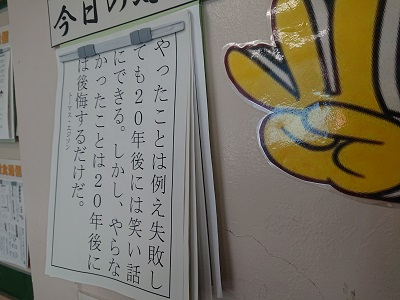 今日の
やったことは例え失敗し
ても20年後には笑い話
にできる。しかし、やらな
かったことは20年後に
は後悔するだけだ。
トーマス・エジソン